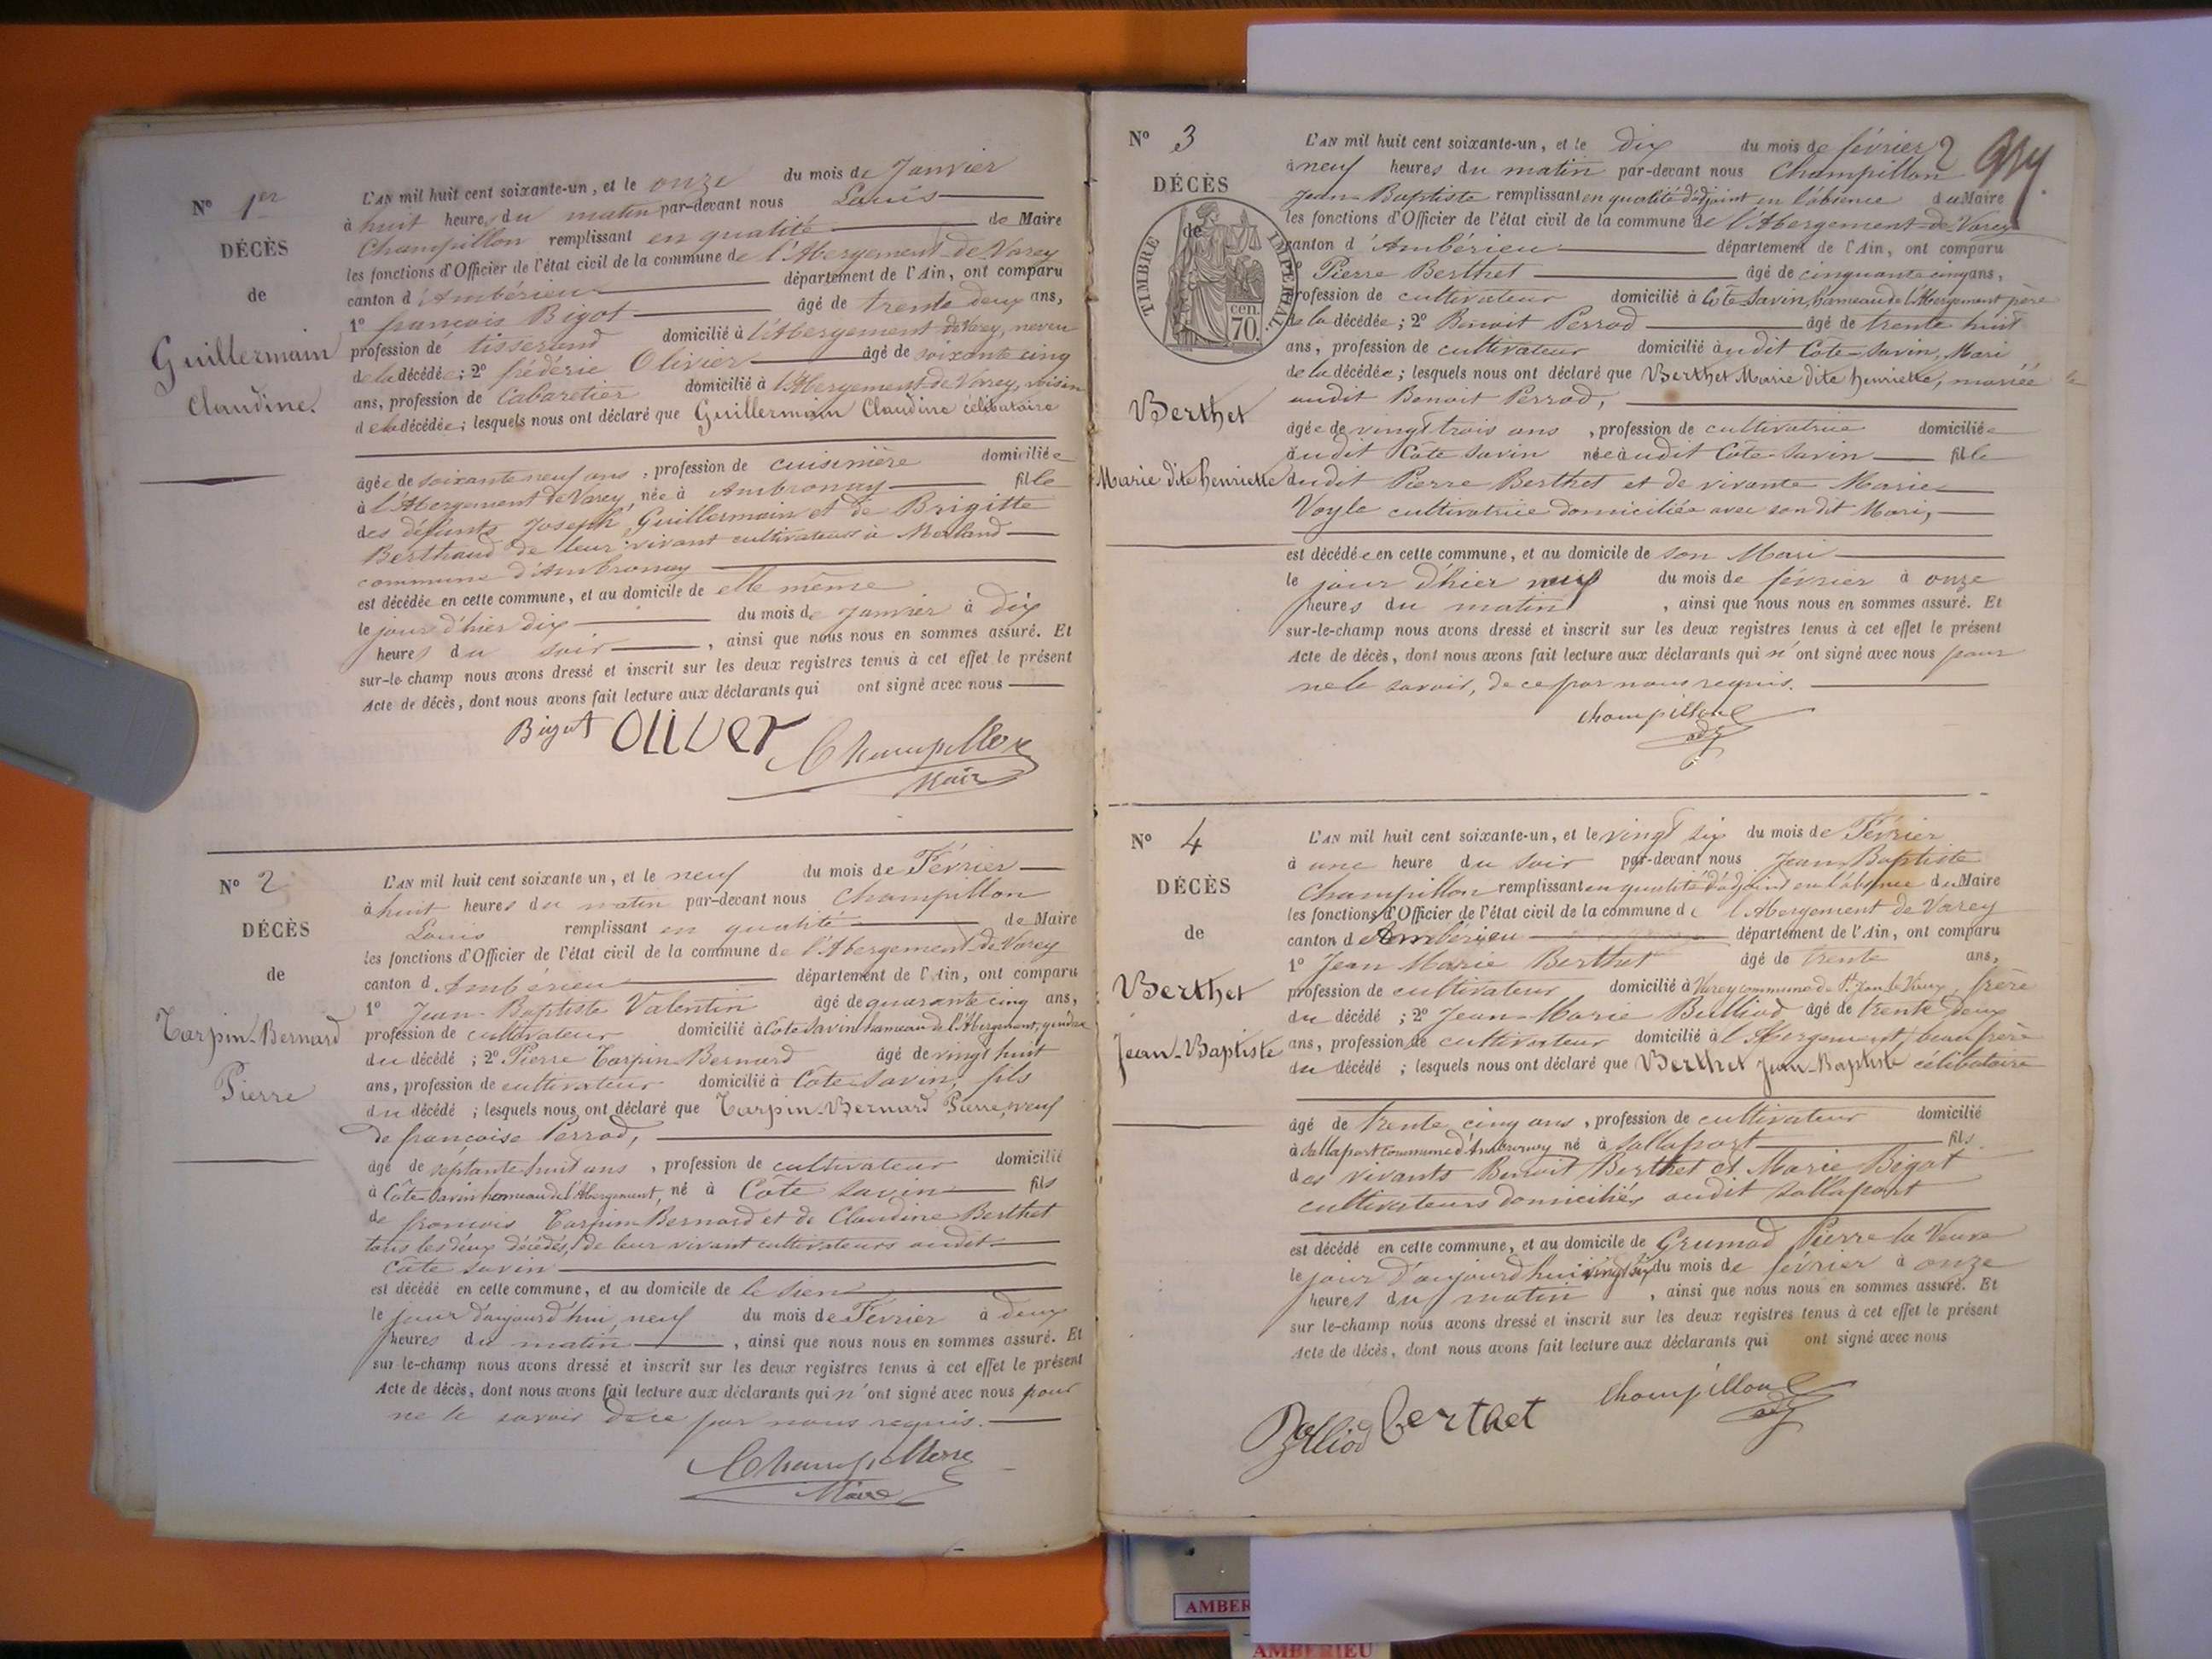 N° 1er
DÉCÈS
de
Guillermain
Claudine.
L'AN mil huit cent soixante-un, et le onze du mois de Janvier
à huit heures du matin par-devant nous Louis
Champillon remplissant en qualité de Maire
les fonctions d'Officier de l'état civil de la commune de l'Abergement de Varey
canton d'Ambérieu département de l'Ain, ont comparu
1° françois Bigot âgé de trente deux ans,
profession de tisserand domicilié à l'Abergement de Varey, neveu
de la décédée; 2° frédéric Olivier âgé de soixante cinq
ans, profession de Cabaretier domicilié à l'Abergement de Varey, voisin
de la décédée; lesquels nous ont déclaré que Guillermain Claudine célibataire
âgée de soixante neuf ans, profession de cuisinière domiciliée
à l'Abergement de Varey née à Ambronay fille
des défunts Joseph Guillermain et de Brigitte
Berthaud de leur vivant cultivateurs à
commune d'Ambronay
est décédée en cette commune, et au domicile de elle même
le jour d'hier dix du mois de Janvier à dix
heures du soir, ainsi que nous nous en sommes assuré. Et
sur-le-champ nous avons dressé et inscrit sur les deux registres tenus à cet effet le présent
Acte de décès, dont nous avons fait lecture aux déclarants qui ont signé avec nous
Bigot Oliver Champillon
Maire
N° 2
DÉCÈS
de
Tarpin-Bernard
Pierre
L'AN mil huit cent soixante un, et le neuf du mois de Février
à huit heures du matin par-devant nous Champillon
Louis remplissant en qualité de Maire
les fonctions d'Officier de l'état civil de la commune de l'Abergement de Varey
canton d'Ambérieu département de l'Ain, ont comparu
1° Jean-Baptiste Valentin âgé de quarante cinq ans,
profession de cultivateur domicilié à Côte Savin hameau de l'Abergement, gendre
du décédé; 2° Pierre Tarpin-Bernard âgé de vingt huit
ans, profession de cultivateur domicilié à Côte-Savin, fils
du décédé; lesquels nous ont déclaré que Tarpin-Bernard Pierre, veuf
de françoise Perrod,
âgé de septante huit ans, profession de cultivateur domicilié
à Côte Savin hameau de l'Abergement, né à Côte Savin fils
de françois Tarpin-Bernard et de Claudine Berthet
tous les deux décédés, de leur vivant cultivateurs audit
Côte Savin
est décédé en cette commune, et au domicile de le sien
le jour d'aujourd'hui, neuf du mois de Février à deux
heures du matin, ainsi que nous nous en sommes assuré. Et
sur-le-champ nous avons dressé et inscrit sur les deux registres tenus à cet effet le présent
Acte de décès, dont nous avons fait lecture aux déclarants qui n'ont signé avec nous pour
ne le savoir de ce par nous requis.
Champillon
Maire
N° 3
DÉCÈS
de
TIMBRE IMPÉRIAL
cen.
70.
Berthet
Marie dite henriette
L'AN mil huit cent soixante-un, et le dix du mois de février 2
à neuf heures du matin par-devant nous Champillon
Jean-Baptiste remplissant en qualité d'adjoint en l'absence du Maire
les fonctions d'Officier de l'état civil de la commune de l'Abergement de Varey
canton d'Ambérieu département de l'Ain, ont comparu
Pierre Berthet âgé de cinquante cinq ans,
profession de cultivateur domicilié à Côte Savin, hameau de l'Abergement père
de la décédée; 2° Benoit Perrod âgé de trente huit
ans, profession de cultivateur domicilié audit Côte-Savin, Mari
de la décédée; lesquels nous ont déclaré que Berthet Marie dite henriette, mariée
audit Benoit Perrod,
âgée de vingt trois ans, profession de cultivatrice domiciliée
audit Côte Savin née audit Côte-Savin fille
dudit Pierre Berthet et de vivante Marie
Voyle cultivatrice domiciliée avec son dit Mari,
est décédée en cette commune, et au domicile de son Mari
le jour d'hier neuf du mois de février à onze
heures du matin, ainsi que nous nous en sommes assuré. Et
sur-le-champ nous avons dressé et inscrit sur les deux registres tenus à cet effet le présent
Acte de décès, dont nous avons fait lecture aux déclarants qui n'ont signé avec nous pour
ne le savoir, de ce par nous requis.
Champillon
adj
N° 4
DÉCÈS
de
Berthet
Jean-Baptiste
L'AN mil huit cent soixante-un, et le vingt six du mois de Février
à une heure du soir par-devant nous Jean Baptiste
Champillon remplissant en qualité d'adjoint en l'absence du Maire
les fonctions d'Officier de l'état civil de la commune de l'Abergement de Varey
canton d'Ambérieu département de l'Ain, ont comparu
1° Jean Marie Berthet âgé de trente ans,
profession de cultivateur domicilié à Varey commune de St Jean le Vieux, frère
du décédé; 2° Jean-Marie Bulliod âgé de trente deux
ans, profession de cultivateur domicilié à l'Abergement, beau frère
du décédé; lesquels nous ont déclaré que Berthet Jean-Baptiste célibataire
âgé de trente cinq ans, profession de cultivateur domicilié
à Sallaport commune d'Ambronay né à Sallaport fils
des vivants Benoit Berthet et Marie Bigot
cultivateurs domiciliés audit Sallaport
est décédé en cette commune, et au domicile de Grumod Pierre la Veuve
le jour d'aujourd'hui vingt six du mois de février à onze
heures du matin, ainsi que nous nous en sommes assuré. Et
sur le-champ nous avons dressé et inscrit sur les deux registres tenus à cet effet le présent
Acte de décès, dont nous avons fait lecture aux déclarants qui ont signé avec nous
Berthet Champillon
adj
AMBER
AMBERIEU